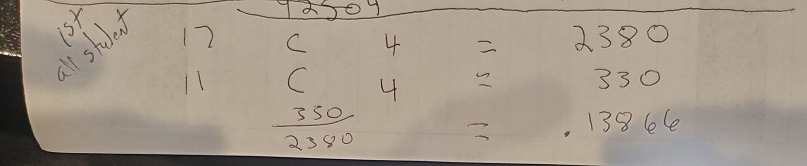 42504
1st
all student
17 C 4 = 2380
11 C 4 = 330
330
2380
= .13866